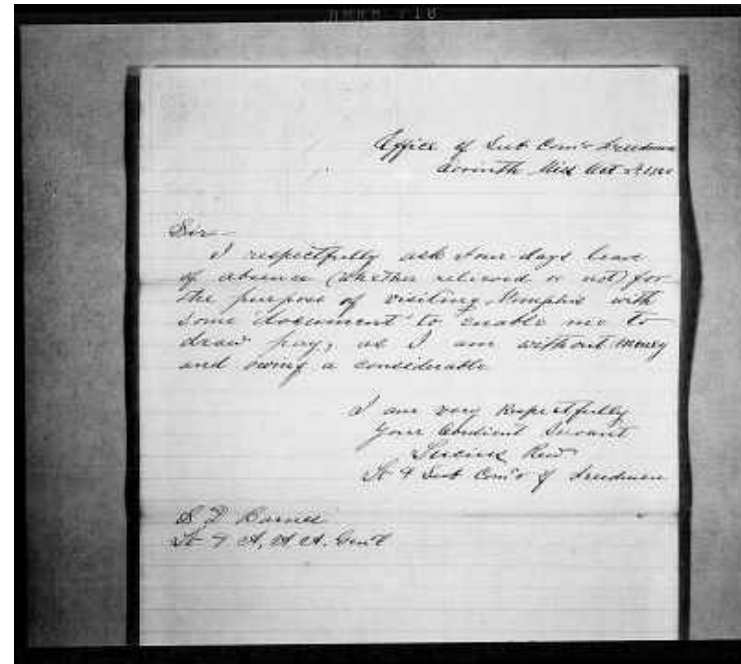 Office of Sub Com'r Freedmen
Corinth Miss Oct
Sir
I respectfully ask four days leave
of absence (whether relieved or not) for
the purpose of visiting Memphis with
some document to enable me to
draw pay, as I am without money
and owing a considerable
I am very Respectfully
Your Obedient Servant
Lt & Sub Com'r of Freedmen
S D Barnes
Lt & A. A. A. Gen'l